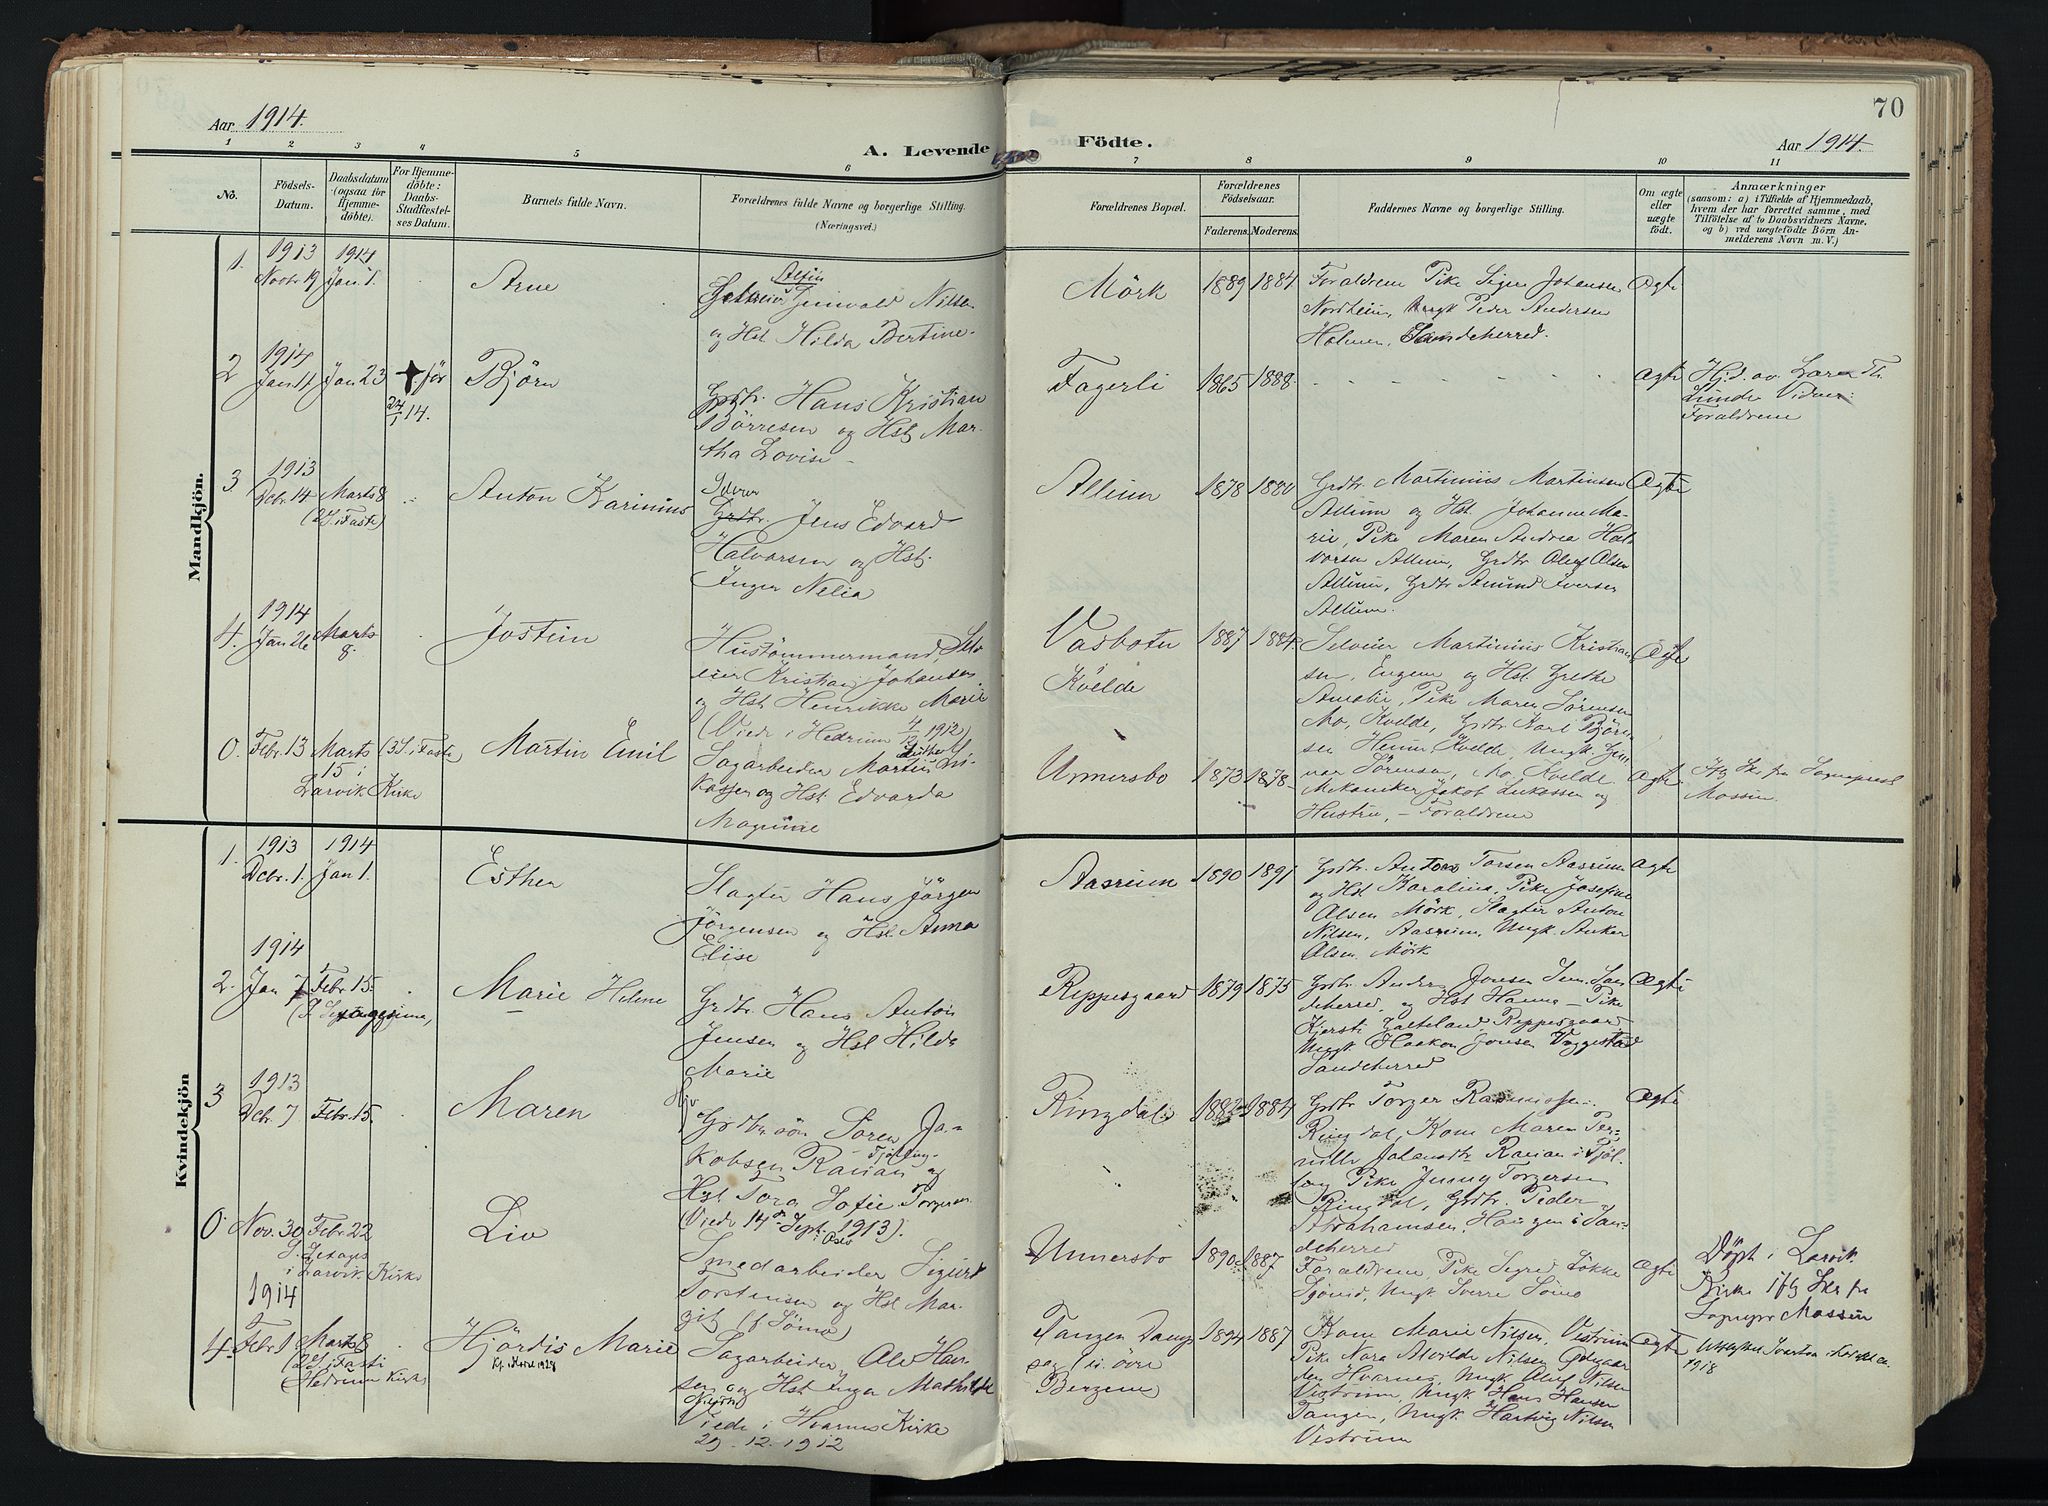 70
Aar 1914.
A. Levende Födte.
Aar 1914.
1 2 3 4 5 6 7 8 9 10 11
No.
Födsels-
Datum.
Daabsdatum
(ogsaa for
Hjemme-
döbte).
For Hjemme-
döbte:
Daabs-
Stadfæstel-
ses Datum.
Barnets fulde Navn.
Forældrenes fulde Navne og borgerlige Stilling.
(Næringsvei.)
Forældrenes Bopæl.
Forældrenes
Födselsaar.
Faderens.
Moderens.
Faddernes Navne og borgerlige Stilling.
Om ægte
eller
uægte
födt.
Anmærkninger
(saasom: a) i Tilfælde af Hjemmedaab,
hvem der har forrettet samme, med
Tilföielse af to Daabsvidners Navne,
og b) ved uægtefödte Börn An-
melderens Navn m. V.)
Mandkjön.
1.
1913
Novbr 19
1914
Jan 1.
Arne
Nilsen
og Hst Hilda Bertine.
Mörk
1889
1884
Forældrene Pike Signe Johansen
Nordheim, Ungk Peder Andersen
Holmen, Sandeherred.
Ægte
2
1914
Jan 11
Jan 23
† för
24/1 14.
Björn
Grdbr. Hans Kristian
Börresen og Hst Mar-
tha Lovise
Fagerli
1865
1888.
Ægte
Hjd. av Lærer Th.
Lunde Vidner:
Forældrene
3
1913
Dcbr. 14
Marts 8
(2 S. i Faste)
Anton Karinius
Grdbr. Jens Edvard
Halvorsen og Hst.
Inger Nelia
Allum
1878
1880
Grdbr Martinius Martinsen
Allum og Hst. Johanne Ma-
rie, Pike Maren Andrea Hal-
vorsen Allum, Grdbr Oluf Olsen
Allum, Grdbr Amund Iversen
Allum.
Ægte
4.
1914
Jan 26
Marts
8.
Jostein
Hustömmermand, Selv-
eier Kristian Johansen
og Hst Henrikke Marie
(Viede i Hedrum 4/12 1912)
Vasbotn
Kvelde
1887
1884.
Selveier Martinius Kristian-
sen, Engene og Hst Grethe
Amalie, Pike Maren Sörensen
Mo, Kvelde, Grdbr Karl Björn-
sen Heum Kvelde, Ungk. Gun-
nar Sörensen, Mo, Kvelde.
Ægte
0.
Febr. 13
Marts
15 i
Larvik Kirke
(3 S. i Faste)
Martin Emil
Sagarbeider Martin Lu-
kassen og Hst Edvarda
Magnine
Unnersbo
1873
1878
Mekaniker Jakob Lukassen og
Hustru, – Forældrene
Ægte
Ifg Skr fra Sogneprest
Mossin.
Kvindekjön
1.
1913
Dcbr. 1.
1914
Jan 1.
Esther
Slagter Hans Jörgen
Jörgensen og Hst Anna
Elise
Aasrum
1890
1891
Grdbr. Anton Torsen Aasrum
og Hst Karoline, Pike Josefine
Olsen Mörk, Slagter Anton
Nilsen, Aasrum, Ungk. Anker
Olsen Mörk
Ægte
2.
1914
Jan 7
Febr. 15
Marie Helene
Grdbr. Hans Anton
Jensen og Hst Hilda
Marie
Reppesgaard
1879
1875
San-
deherred, og Hst Hanna – Pike
Kjersti Gatteland, Reppesgaard
Ungk Haakon Jonsen Vaggestad
Sandeherred
Ægte
3
1913
Dcbr. 7
Febr. 15.
Maren
Grdbr sön Sören Ja-
kobsen Ravian Tjölling og
Hst Tora Sofie Torgersen
(Viede 14de Septr 1913).
Ringdal
1882
1884
Grdbr Torger Rasmussen
Ringdal, Kone Maren Per-
nille Johansdtr Ravian i Tjöl-
ling Pike Jenny Torgersen
Ringdal, Grdbr. Peder
Abrahamsen, Haugen i San-
deherred
Ægte
0.
Nov. 30
Febr 22
S. Sexages
i Larvik Kirke
Liv
Smedarbeider Sigurd
Torstensen og Hst Mar-
git (f. Sömo)
Unnersbo
1890
1887
Forældrene, Pike Sigrid Lökke
Ungk Sverre Sömo
Ægte
Döpt i Larvik
Kirke ifg Skr fra
Sognepr Mossin
4.
1914
Febr 1
Marts 8
(2 S. i Faste)
Hedrum Kirke
Hjördis Marie
Sagarbeider Ole Han-
sen og Hst Inger Mathilde
Viede i Hvarnes Kirke
29-12-1912
Tangen
övre
Bergene
1894
1887
Kone Marie Nilsen, Vestrum
Pike Nora Alvilde Nilsen Odgaar-
den Hvarnes, Ungk Oluf Nilsen
Vestrum, Ungk Hans Hansen
Tangen, Ungk. Hartvig Nilsen
Vestrum
Ægte
1918